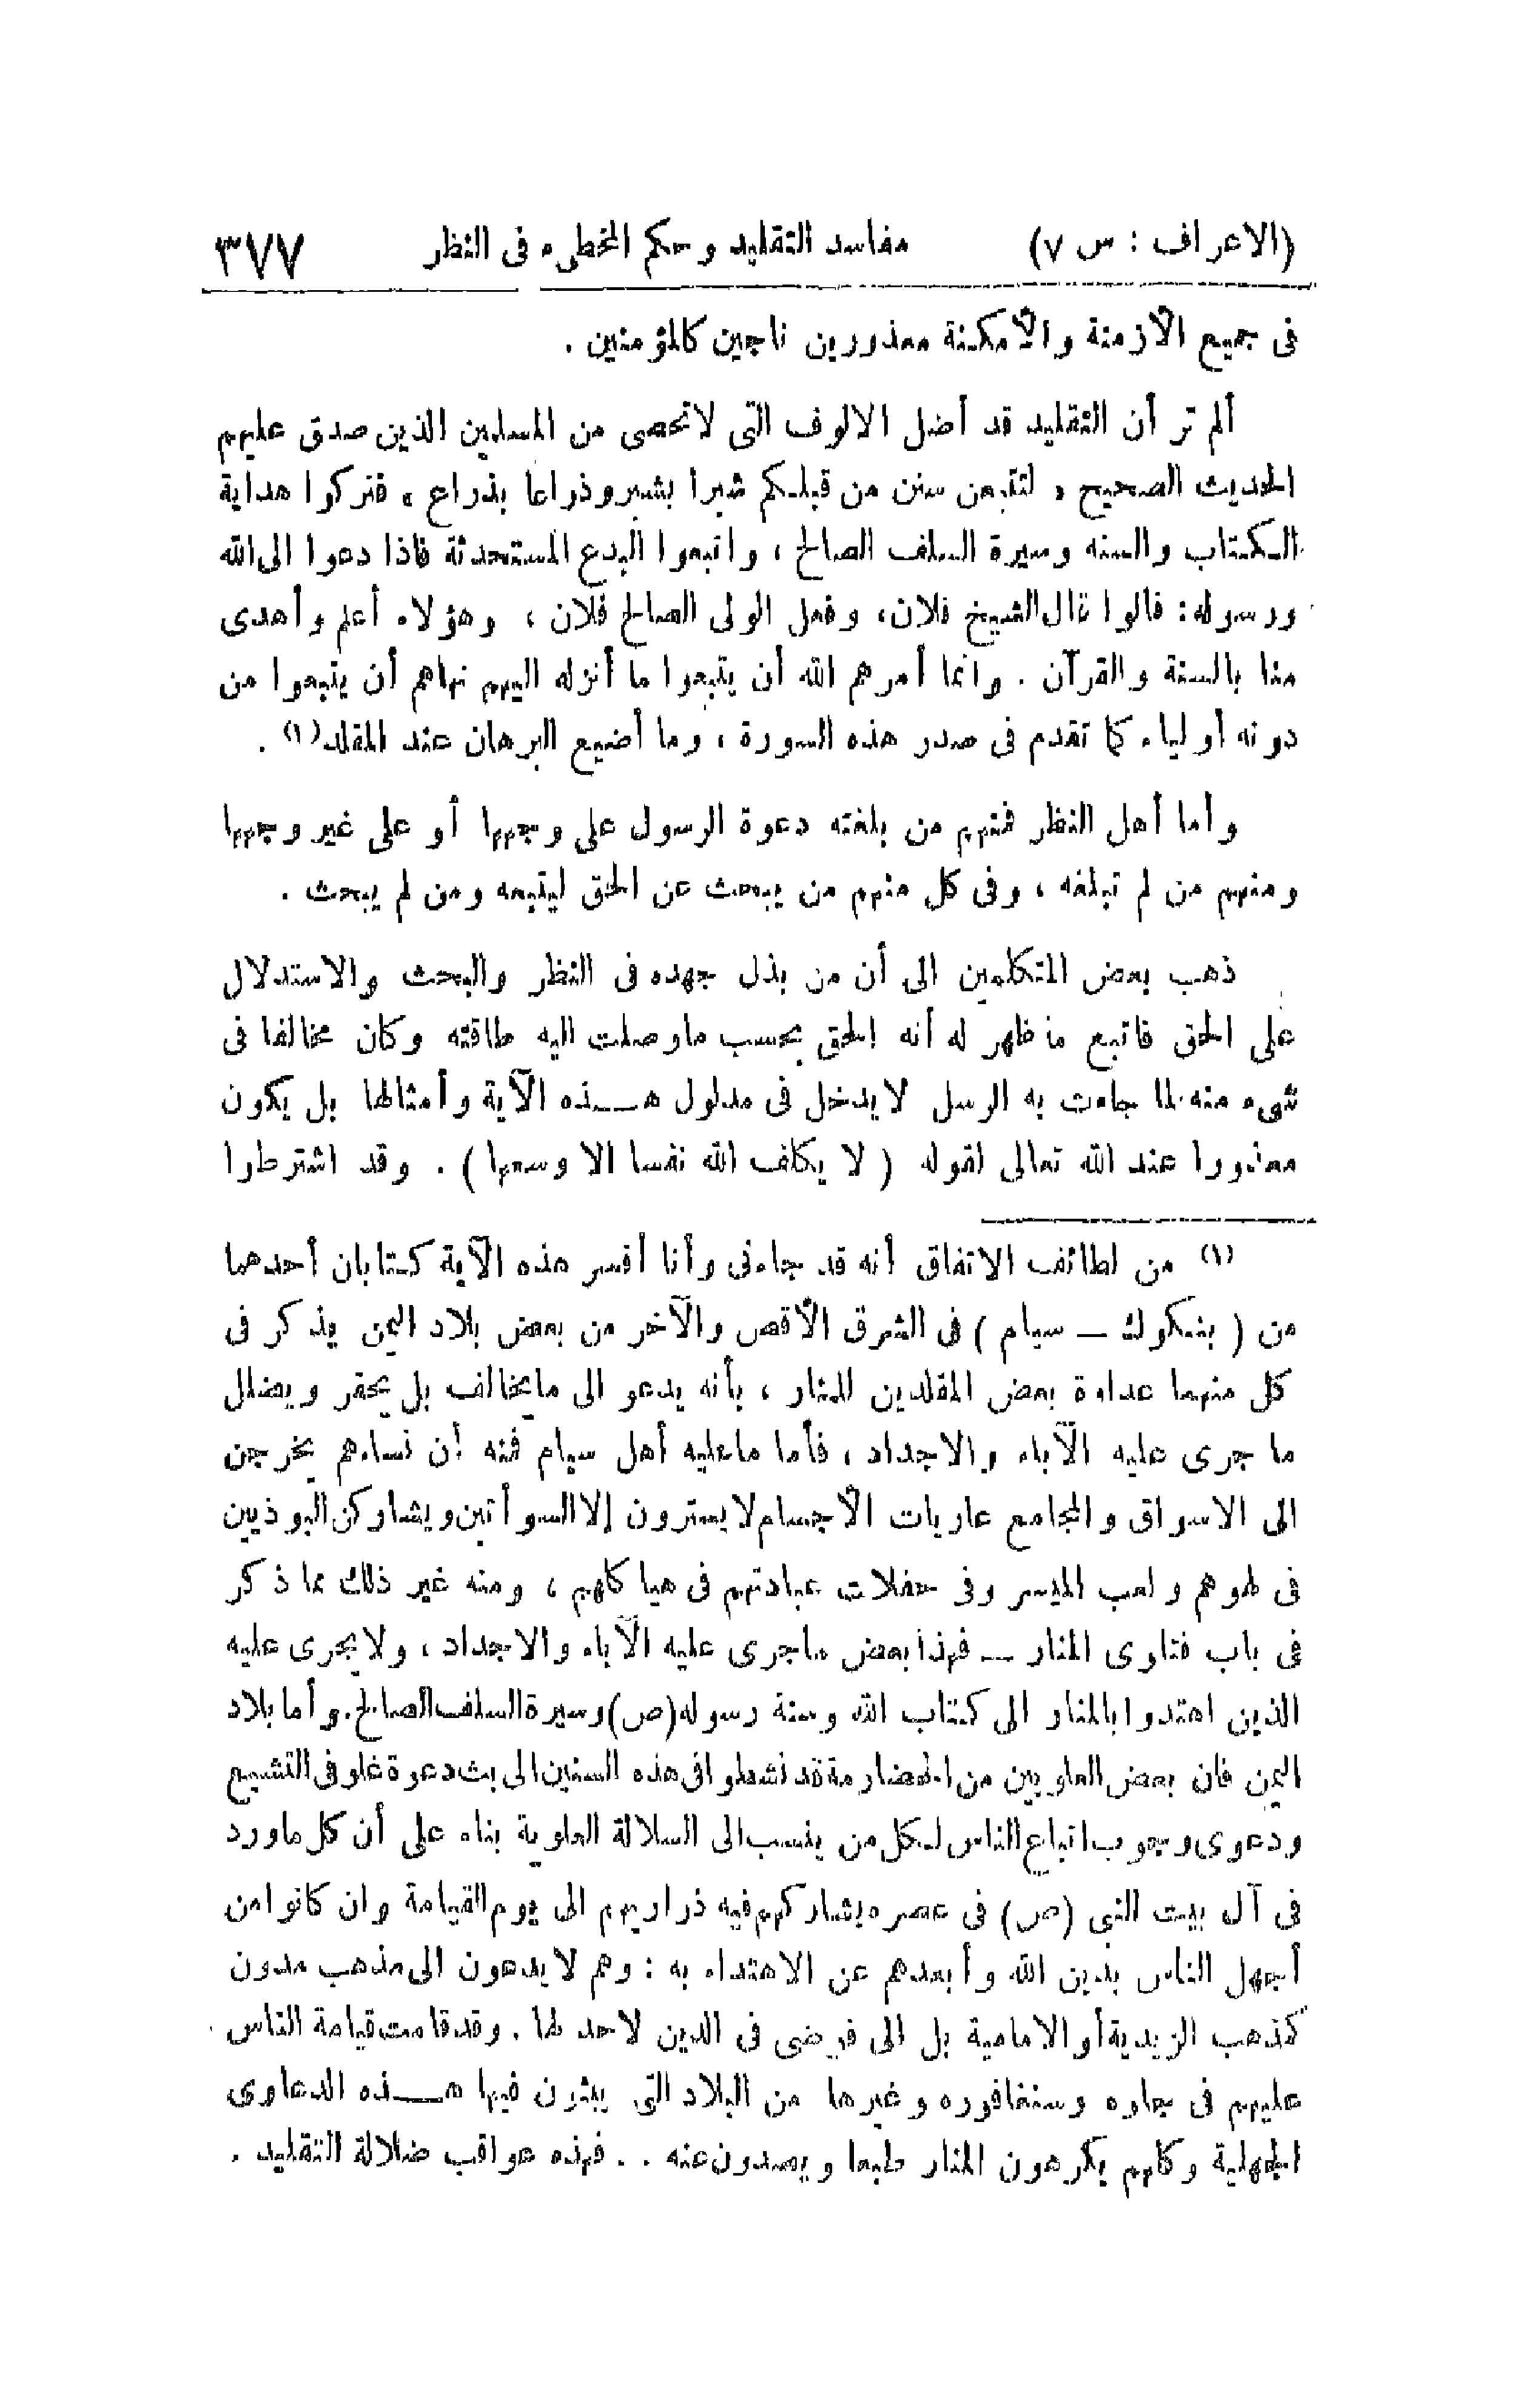 (الاعراف : س ٧) مفاسد التقليد وحكم المخطىء فى النظر ٣٧٧
فى جميع الأزمنة والأمكنة معذورين ناجين كالمؤمنين .
ألم تر أن التقليد قد أضل الالوف التى لاتحصى من المسلمين الذين صدق عليهم
الحديث الصحيح « لتتبعن سنن من قبلكم شبرا بشبر وذراعا بذراع » فتركوا هداية
الكتاب والسنه وسيرة السلف الصالح ، واتبعوا البدع المستحدثة فاذا دعوا الى الله
ورسوله: قالوا قال الشيخ فلان، وفعل الولى الصالح فلان ، وهؤلاء أعلم وأهدى
منا بالسنة والقرآن . وانما أمرهم الله أن يتبعوا ما أنزله اليهم نهاهم أن يتبعوا من
دونه أولياء كما تقدم فى صدر هذه السورة ، وما أضيع البرهان عند المقلد(١) .
وأما أهل النظر فمنهم من بلغته دعوة الرسول على وجهها أو على غير وجهها
ومنهم من لم تبلغه ، وفى كل منهم من يبحث عن الحق ليتبعه ومن لم يبحث .
ذهب بعض المتكلمين الى أن من بذل جهده فى النظر والبحث والاستدلال
على الحق فاتبع ما ظهر له أنه الحق بحسب ماوصلت اليه طاقته وكان مخالفا فى
شىء منه لما جاءت به الرسل لايدخل فى مدلول هـــذه الآية وأمثالها بل يكون
معذورا عند الله تعالى لقوله ( لا يكلف الله نفسا الا وسعها ) . وقد اشترطوا
(١) من لطائف الاتفاق أنه قد جاءنى وأنا أفسر هذه الآية كتابان أحدهما
من ( بنكوك – سيام ) فى الشرق الأقصى والآخر من بعض بلاد اليمن يذكر فى
كل منهما عداوة بعض المقلدين للمنار ، بأنه يدعو الى مايخالف بل يحقر ويضلل
ما جرى عليه الآباء والاجداد ، فأما ماعليه أهل سيام فمنه أن نساءهم يخرجن
الى الاسواق والمجامع عاريات الأجسام لايسترون إلا السوأتين ويشاركن البوذيين
فى لهوهم ولعب الميسر وفى حفلات عبادتهم فى هياكلهم ، ومنه غير ذلك مما ذكر
فى باب فتاوى المنار – فهذا بعض ماجرى عليه الآباء والاجداد ، ولايجرى عليه
الذين اهتدوا بالمنار الى كتاب الله وسنة رسوله (ص) وسيرة السلف الصالح. وأما بلاد
اليمن فان بعض العلويين من الحضارمة قد نشطوا فى هذه السنين الى بث دعوة غلو فى التشيع
ودعوى وجوب اتباع الناس لكل من ينسب الى السلالة العلوية بناء على أن كل ماورد
فى آل بيت النبى (ص) فى عصره يشاركهم فيه ذراريهم الى يوم القيامة وان كانوا من
أجهل الناس بدين الله وأبعدهم عن الاهتداء به : وهم لايدعون الى مذهب مدون
كمذهب الزيدية أو الامامية بل الى فوضى فى الدين لاحد لها . وقد قامت قيامة الناس
عليهم فى جاوه وسنغافوره وغيرها من البلاد التى يبثون فيها هـــذه الدعاوى
الجهلية وكلهم يكرهون المنار طبعا ويصدون عنه . . فهذه عواقب ضلالة التقليد .